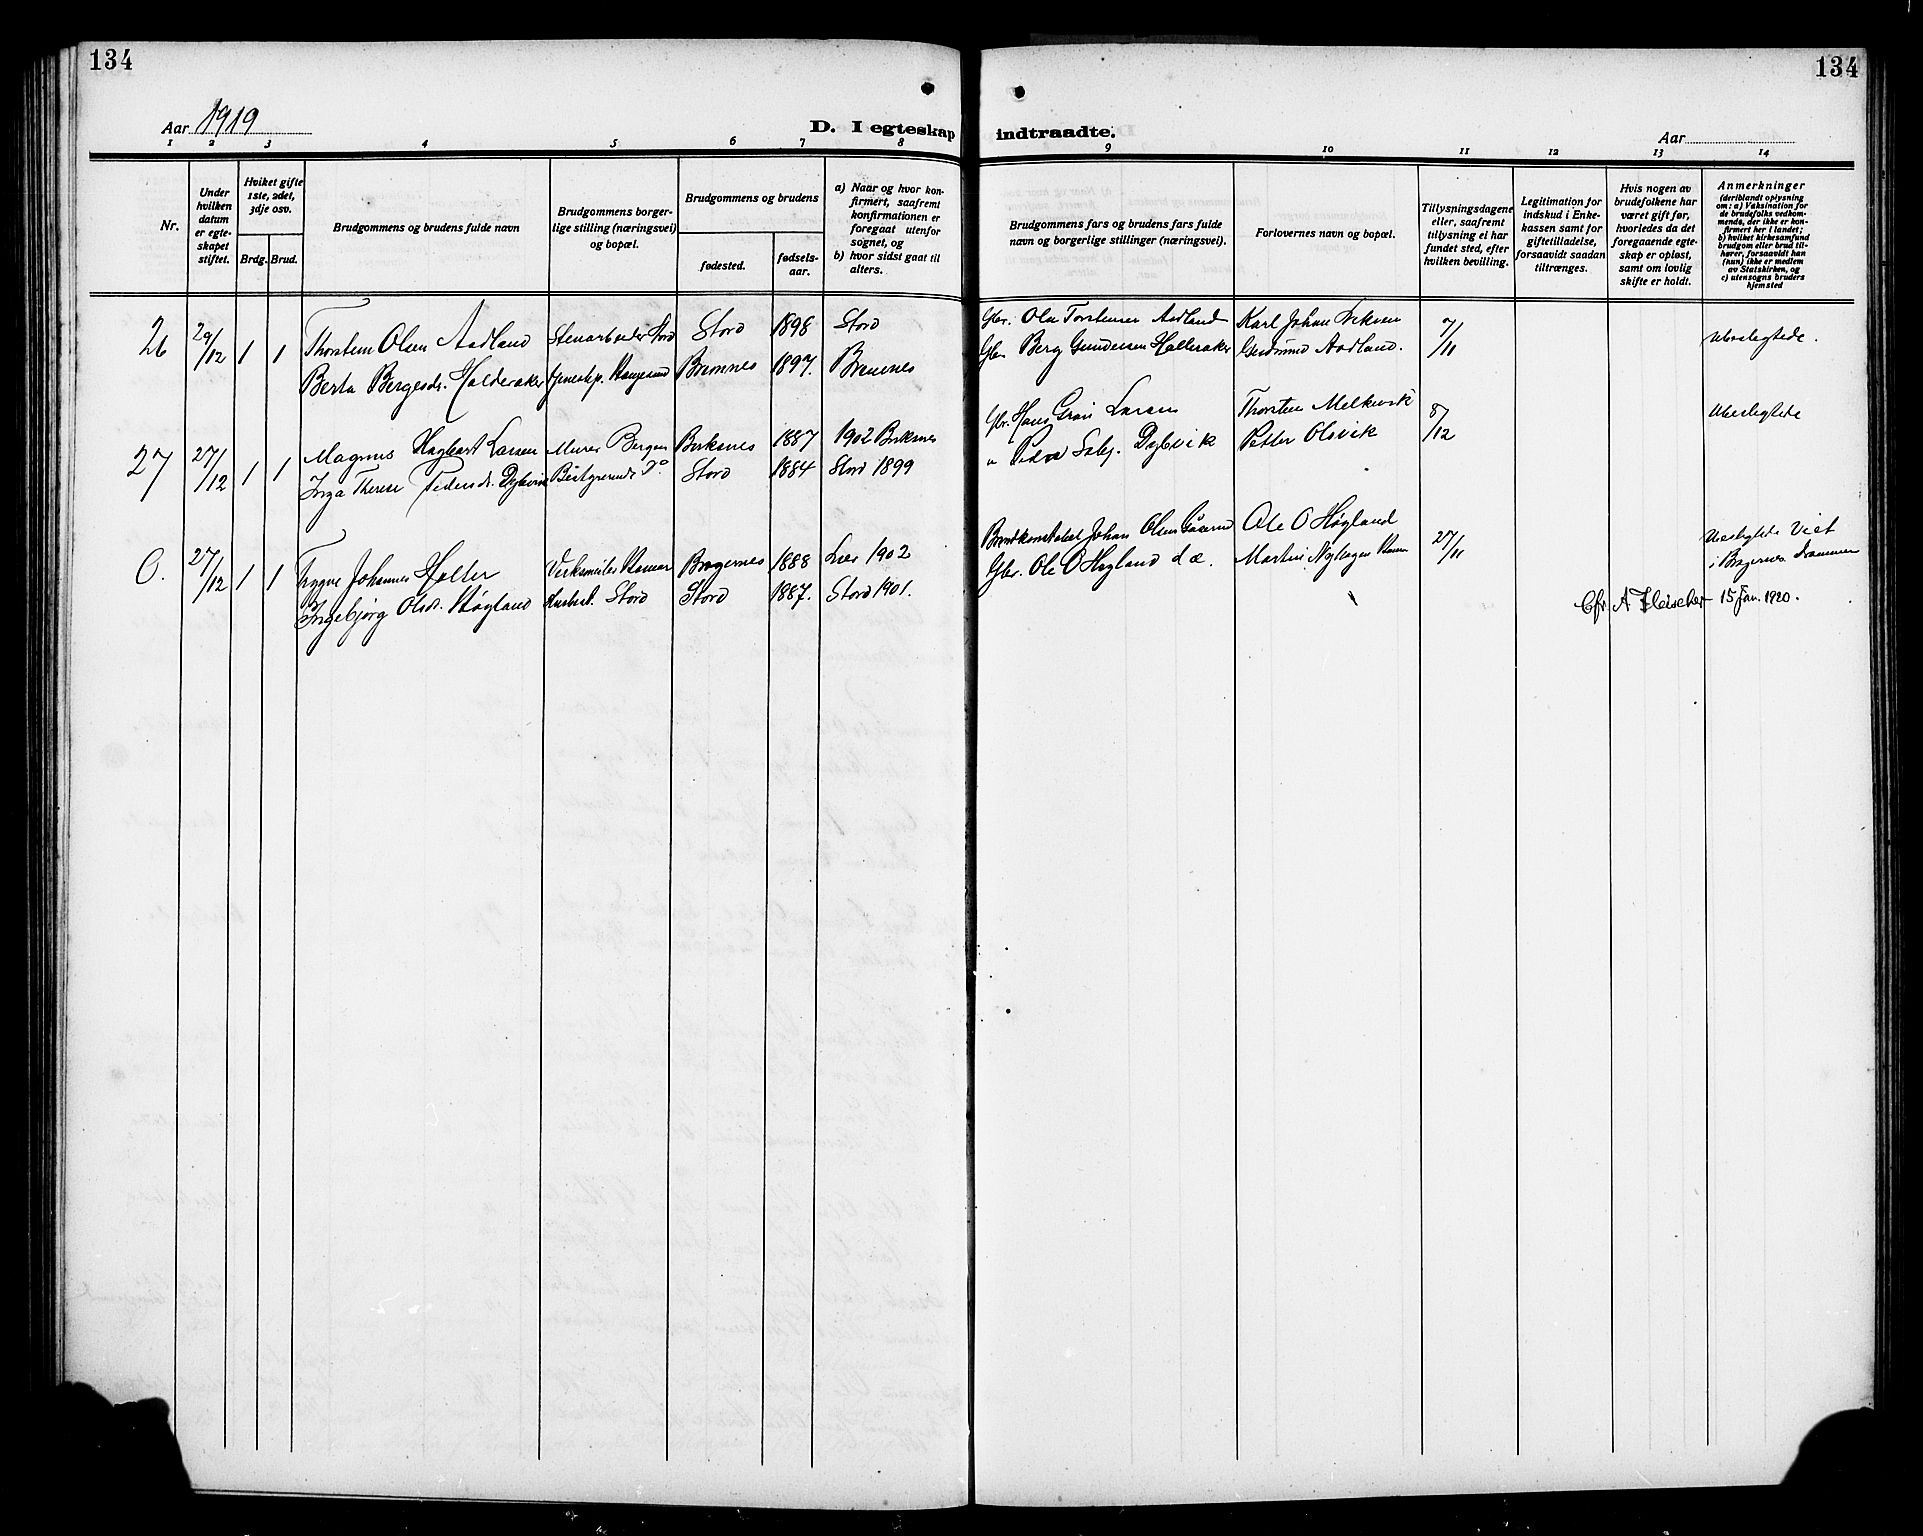 134
134
Aar 1919
D. I egteskap indtraadte.
Aar
1 2 3 4 5 6 7 8 9 10 11 12 13 14
Nr.
Under
hvilken
datum
er egte-
skapet
stiftet.
Hvilket gifte
1ste, 2det,
3dje osv.
Brdg. Brud.
Brudgommens og brudens fulde navn
Brudgommens borger-
lige stilling (næringsvei)
og bopæl.
Brudgommens og brudens
fødested.
fødsels-
aar.
a) Naar og hvor kon-
firmert, saafremt
konfirmationen er
foregaat utenfor
sognet, og
b) hvor sidst gaat til
alters.
Brudgommens fars og brudens fars fulde
navn og borgerlige stillinger (næringsvei).
Forlovernes navn og bopæl.
Tillysningsdagene
eller, saafremt
tillysning ei har
fundet sted, efter
hvilken bevilling.
Legitimation for
indskud i Enke-
kassen samt for
giftetilladelse,
forsaavidt saadan
tiltrænges.
Hvis nogen av
brudefolkene har
været gift før,
hvorledes da det
foregaaende egte-
skap er opløst,
samt om lovlig
skifte er holdt.
Anmerkninger
(deriblandt oplysning
om: a) Vaksination for
de brudefolks vedkom-
mende, der ikke er kon-
firmert her i landet;
b) hvilket kirkesamfund
brudgom eller brud til-
hører, forsaavidt han
(hun) ikke er medlem
av Statskirken, og
c) utensogns bruders
hjemsted
26 29/12 1 1 Thorstein Olsen Aadland Stenarbeider Stord Stord 1898 Stord Gbr. Ola Torstensen Aadland Karl Johan 7/11 Ubeslegtede.
Berta Bergesdr. Halderaker Tjenestep. Haugesund Bremnes 1897. Bremnes Gbr. Berg Gundersen Halleraker Gudmund Aadland.
27 27/12 1 1 Magnus Hagbart Larsen Murer Bergen Birksnes 1887 1902 Birksnes Gbr. Hans Larsen Thorsten Melkevik 8/12 Ubeslegtede
Inga Therese Pedersdr. Dybvik Bestyrerinde Do Stord 1884 Stord 1899 " Peder Salej. Dybvik Petter Olsvik
O. 27/12 1 1 Trygve Johannes Holter Verksmeiler Hamar Bragernes 1888 Lier 1902 Brandkonstabel Johan Olsen Ole O Høgland 27/11 Ubeslegtede Viet
Ingebjørg Olsdr. Høgland Husbest. Stord Stord 1887. Stord 1901. Gbr. Ole O Høgland d. æ. Martin Nybøgen Hamar i Bragernes Drammen
Cfr. A Fleischer 15 Jan. 1920.